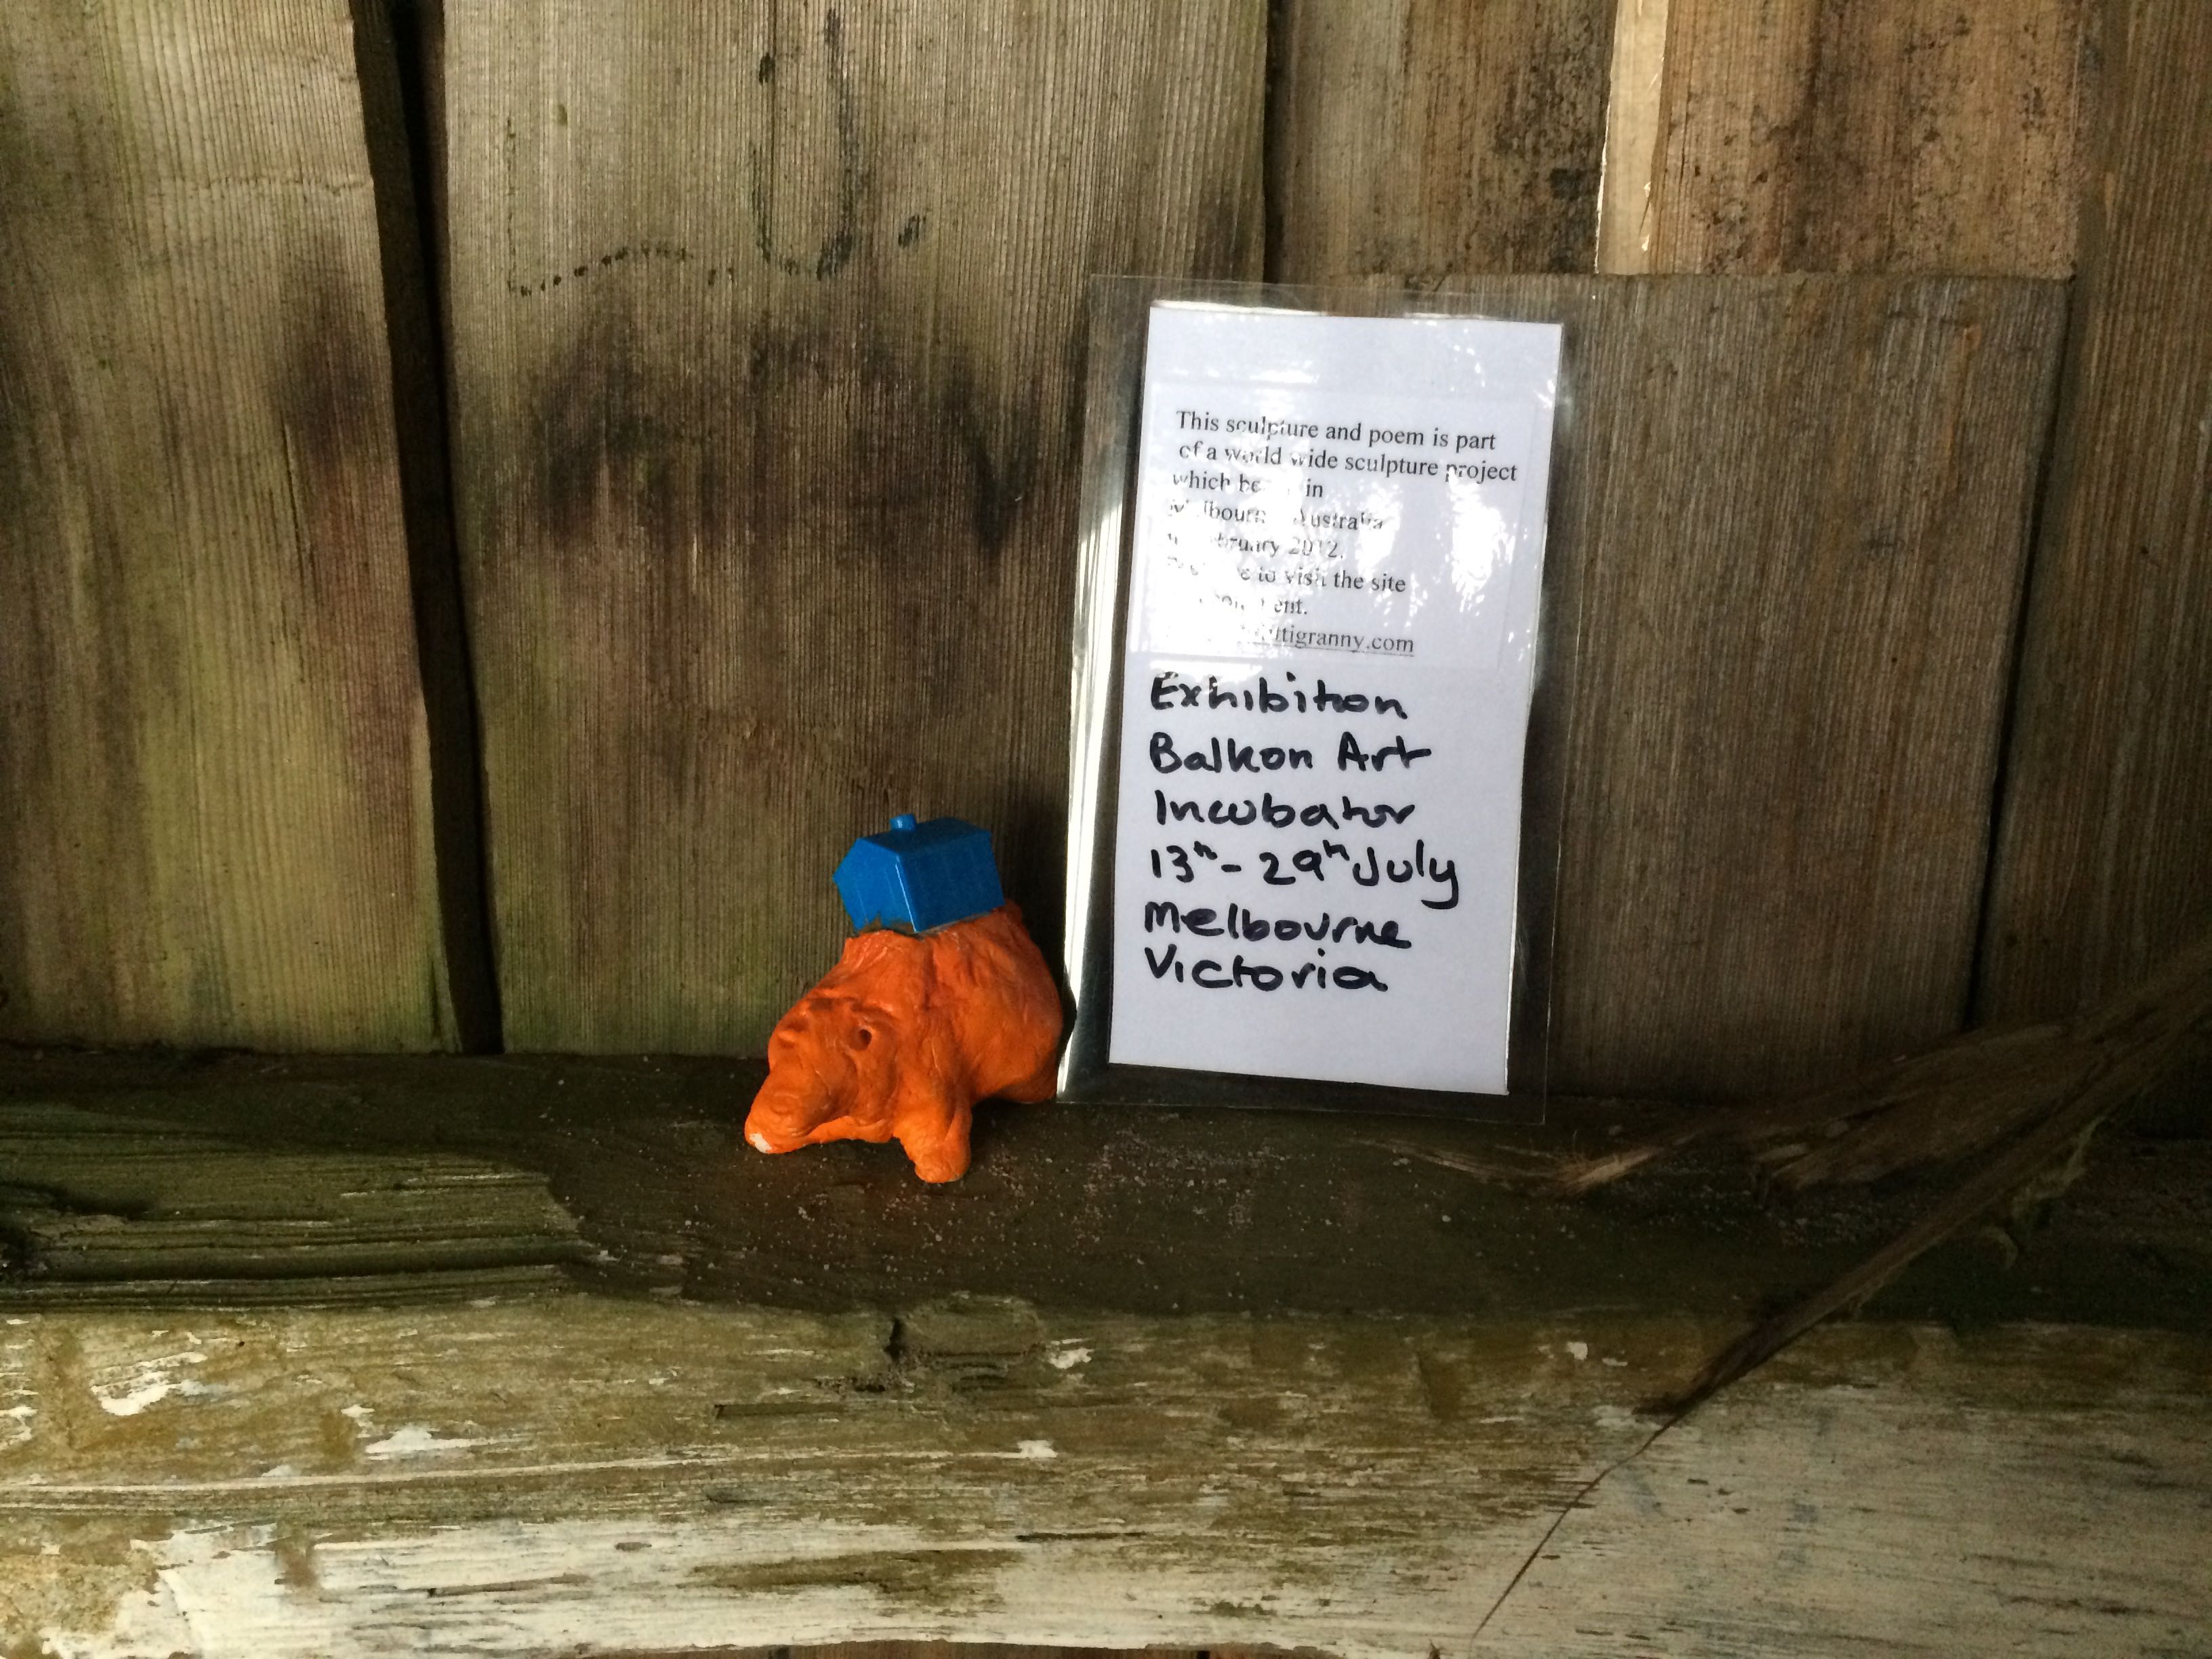 This sculpture and poem is part
of a world wide sculpture project
which in
Melbourne Australia
February 2012.
to visit the site

Exhibition
Balkon Art
Incubator
13th - 29th July
Melbourne
Victoria